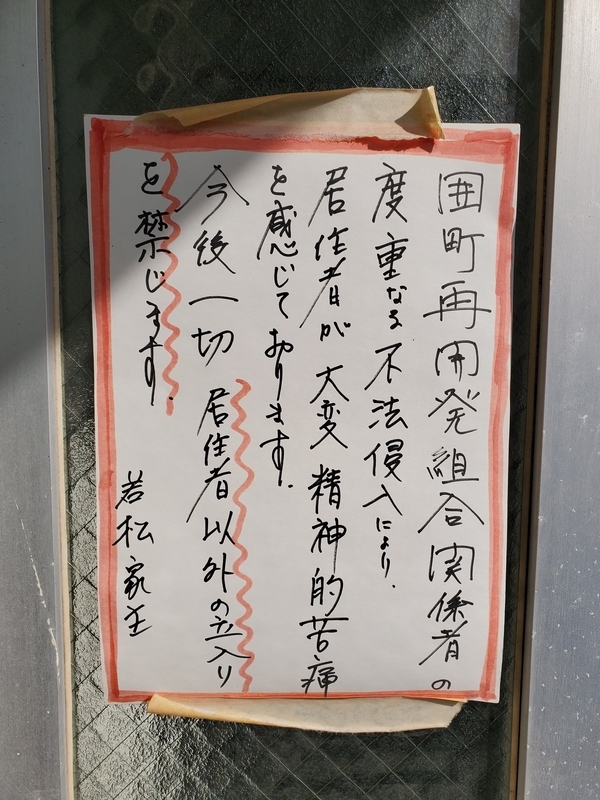 囲町再開発組合関係者の
度重なる不法侵入により.
居住者が大変精神的苦痛
を感じております.
今後一切 居住者以外の立入り
を禁じます.
若松 家主